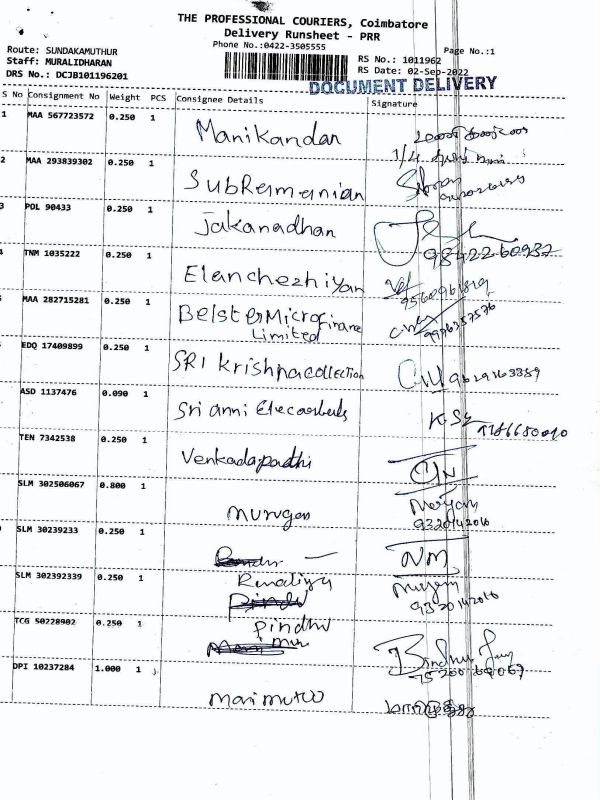 THE PROFESSIONAL COURIERS, Coimbatore
Delivery Runsheet - PRR
Phone No.:0422-3505555
Page No.:1
Route: SUNDAKAMUTHUR
Staff: MURALIDHARAN
DRS No.: DCJB101196201
RS No.: 1011962
RS Date: 02-Sep-2022
DOCUMENT DELIVERY
S No Consignment No Weight PCS Consignee Details Signature
1 MAA 567723572 0.250 1 Manikandan
2 MAA 293839302 0.250 1 SubRamanian
3 POL 90433 0.250 1 Jakanadhan
98422 60937
4 TNM 1035222 0.250 1 Elanchezhiyan
MAA 282715281 0.250 1 Belster Microfinane
Limited
9976357576
EDQ 17409899 0.250 1 SRI Krishnacollection
9629163389
ASD 1137476 0.090 1 Sri anni
TEN 7342538 0.250 1 Venkadapadhi
SLM 302506067 0.800 1 murugan
9320142016
SLM 30239233 0.250 1
NM
SLM 302392339 0.250 1
9320142016
TCG 50228902 0.250 1 pindhu
DPI 10237284 1.000 1 marimuttu